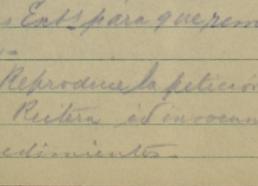 s Ents para que rem
Reproduce la petición
Reitera id in vocum
edimientos.